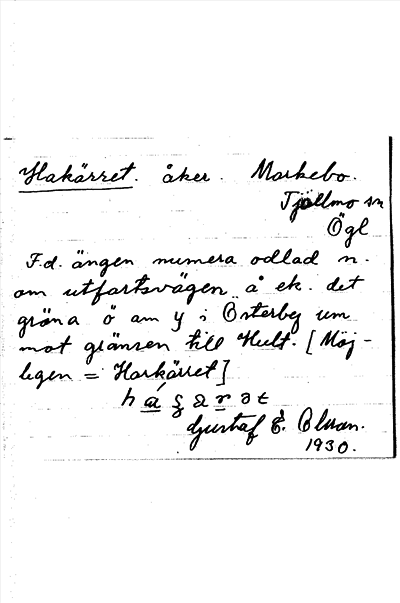 Hakärret. åker. Markebo.
Tjällmo sn
Ögl
F.d. ängen numera odlad n.
om utfartsvägen å ek. det
gröna ö am y i Österbyg um
mot gränsen till Hult. [Möj-
legen = Harkärret]
Gustaf E. Olsson.
1930.